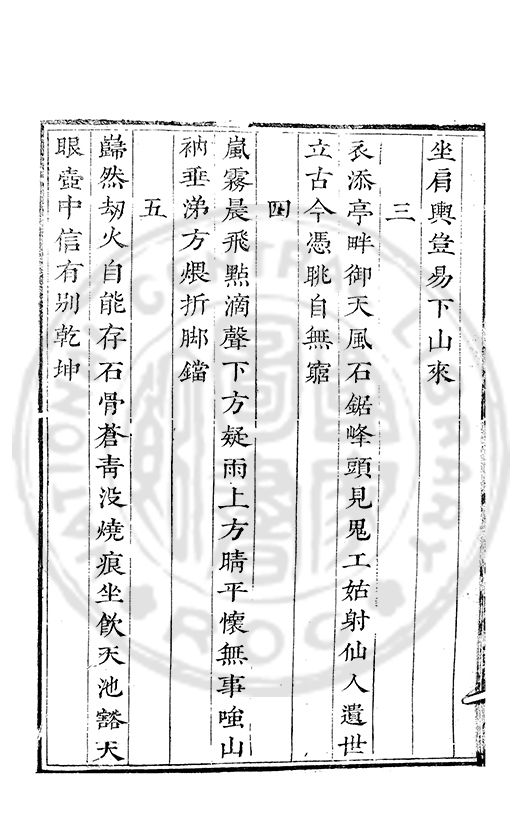 坐肩輿豈易下山來
三
衣添亭畔御天風石鋸峰頭見鬼工姑射仙人遺世
立古今憑眺自無窮
四
嵐霧晨飛點滴聲下方疑雨上方晴平懷無事嗤山
衲垂涕方煨折脚鐺
五
巋然劫火自能存石骨蒼青没燒痕坐飲天池豁天
眼壺中信有别乾坤
NATIONAL CENTRAL LIBRARY
ROC